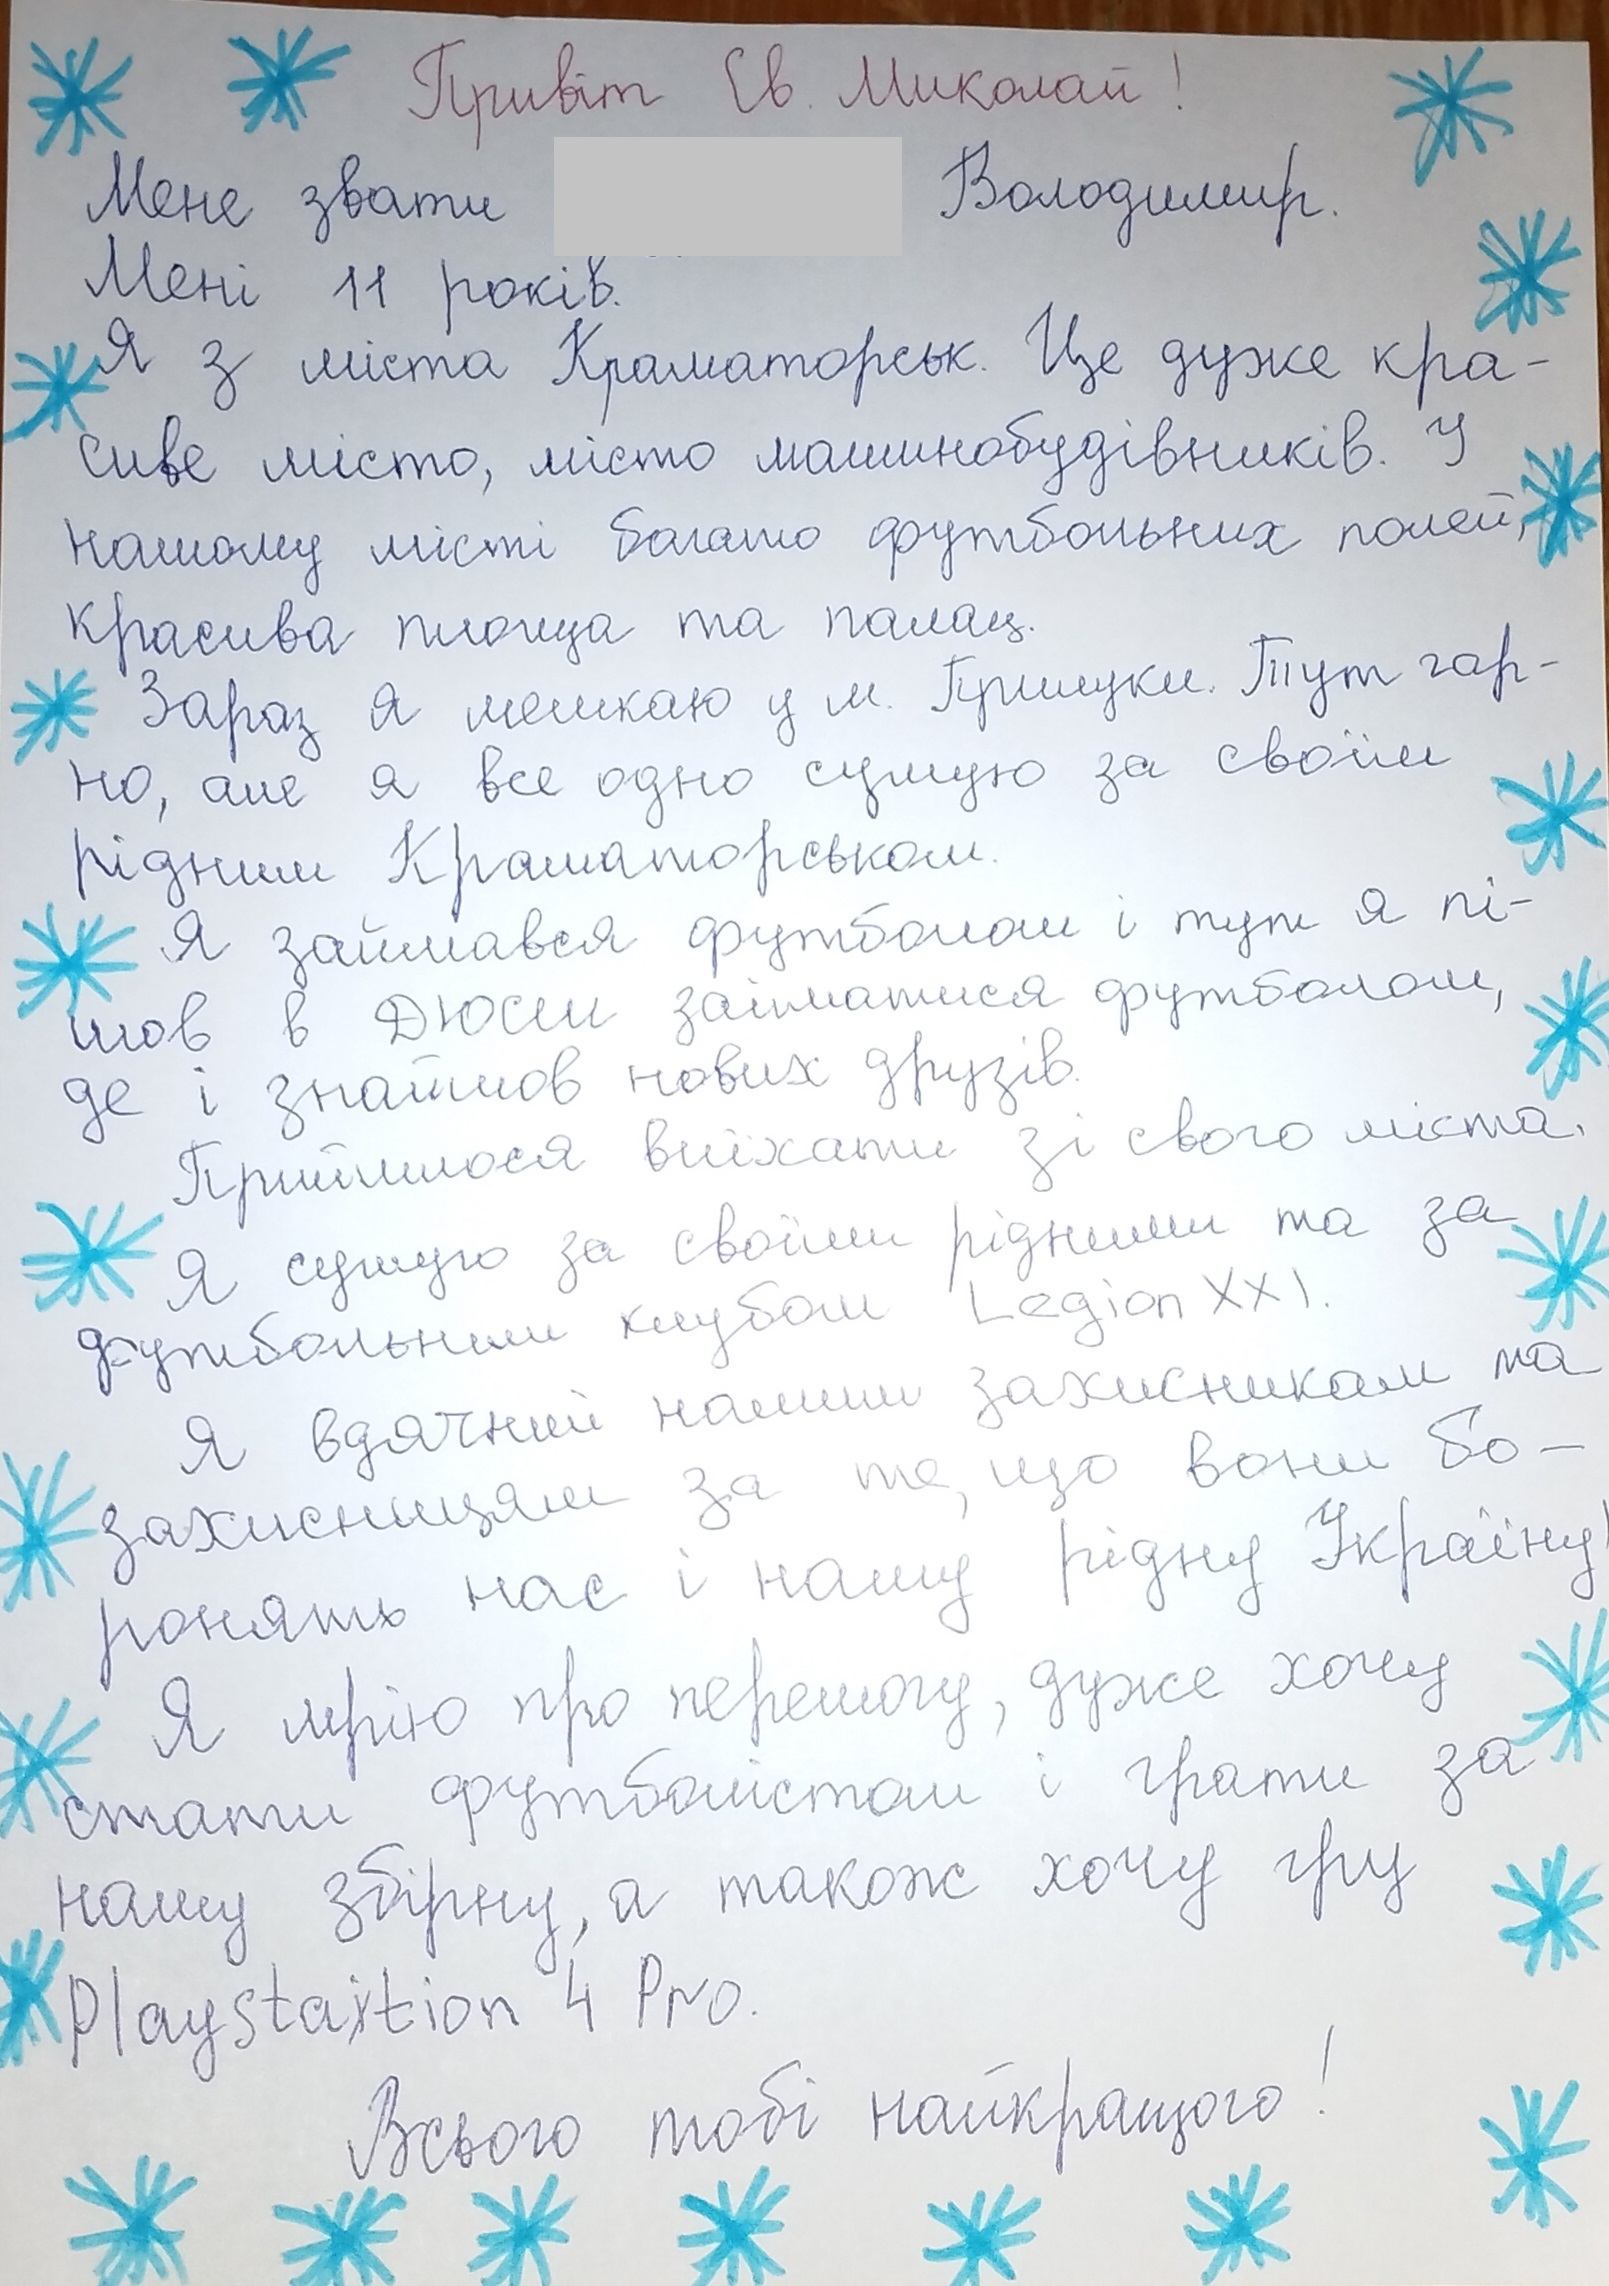 Привіт Св. Миколай!
Мене звати Володимир.
Мені 11 років.
Я з міста Краматорськ. Це дуже кра-
сиве місто, місто машинобудівників. У
нашому місті багато футбольних полей,
красива площа та палац.
Зараз я мешкаю у м. Прилуки. Тут гар-
но, але я все одно сумую за своїм
рідним Краматорськом.
Я займався футболом і тут я пі-
шов в ДЮСШ займатися футболом,
де і знайшов нових друзів.
Прийшлося виїхати зі свого міста.
Я сумую за своїми рідними та за
футбольним клубом Legion XXI.
Я вдячний нашим захисникам та
захисницям за те, що вони бо-
ронять нас і нашу рідну Україну!
Я мрію про перемогу, дуже хочу
стати футболістом і грати за
нашу збірну, а також хочу гру
Playstaition 4 Pro.
Всього тобі найкращого!